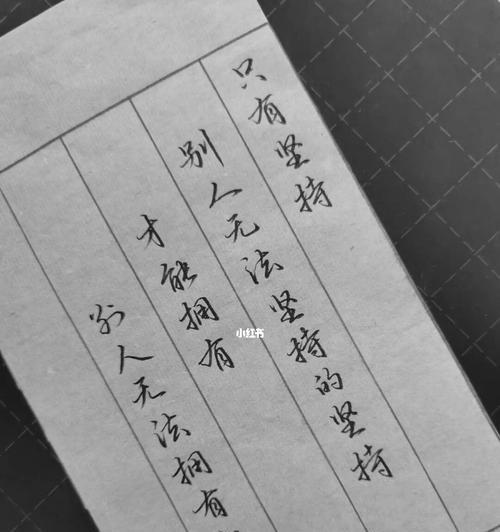 只有坚持
别人无法坚持的坚持
才能拥有
别人无法拥有
小红书